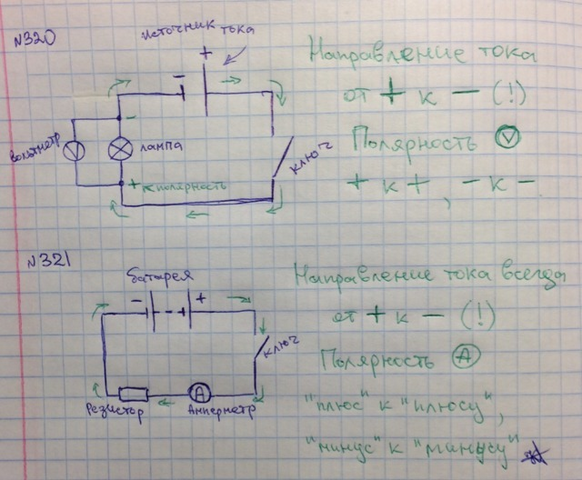 N320
источник тока
+
-
Направление тока
от + к - (!)
вольтметр
V
-
лампа
ключ
Полярность V
+ ← полярность
+ к +, - к -
N321
батарея
- +
Направление тока всегда
от + к - (!)
ключ
Полярность A
A
Резистор Амперметр
"плюс" к "плюсу",
"минус" к "минусу"